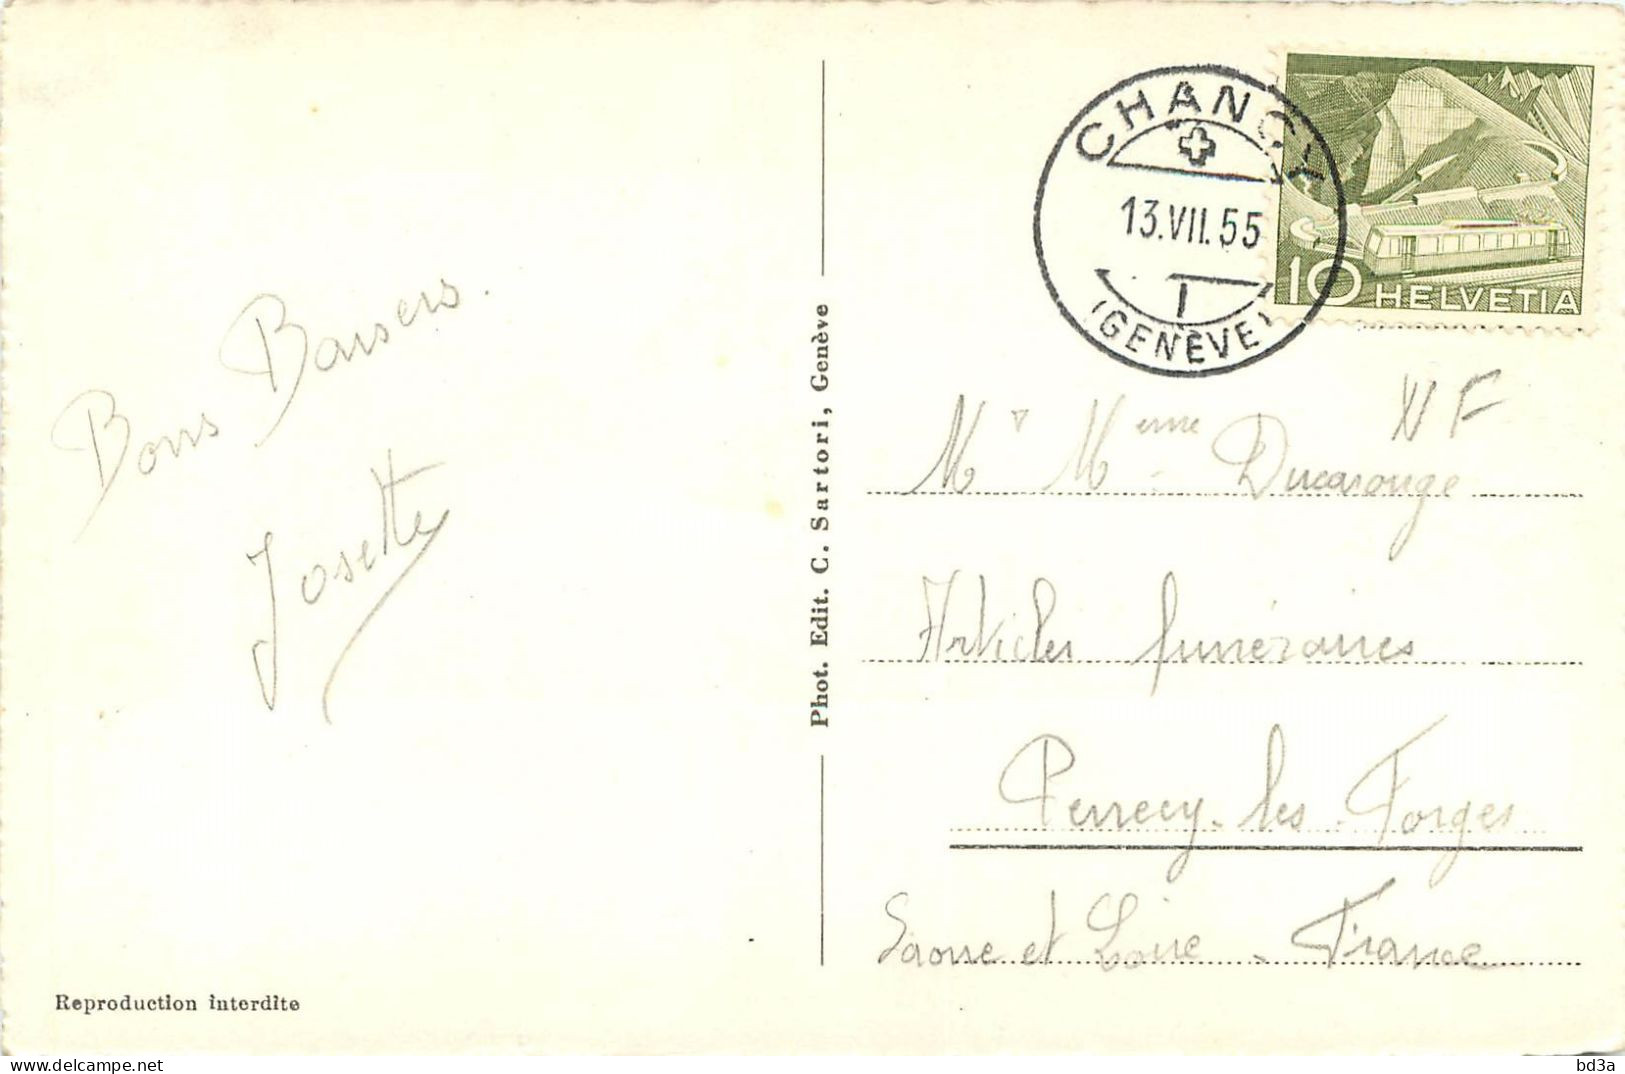 CHANCY
13.VII.55
1
(GENÈVE)
10 HELVETIA
Bons Baisers.
Josette
Phot. Edit. C. Sartori, Genève
Mr Meme Ducarouge
Articles funéraires
Perrecy-les-Forges
Saone et Loire - France
Reproduction interdite
delcampe.net
bd3a